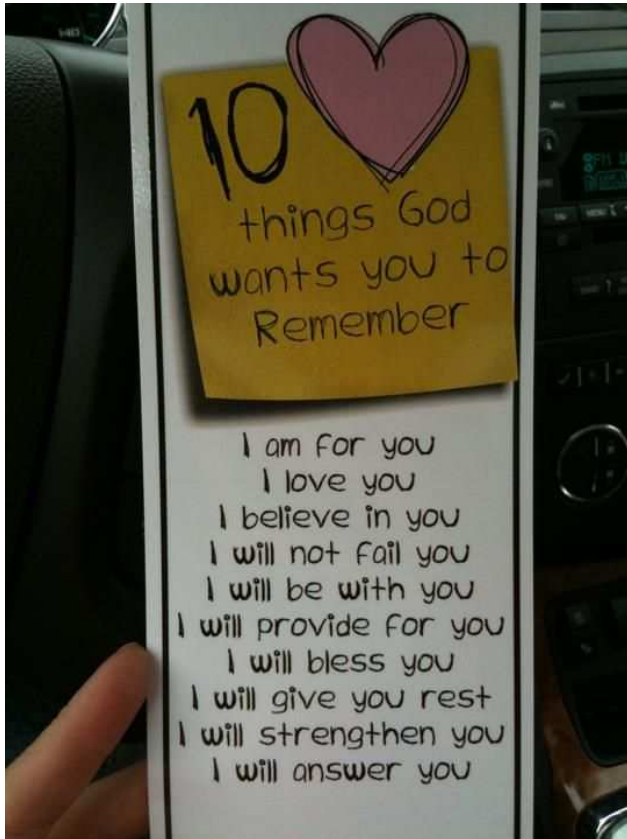 10
things God
wants you to
Remember
I am for you
I love you
I believe in you
I will not fail you
I will be with you
I will provide for you
I will bless you
I will give you rest
I will strengthen you
I will answer you